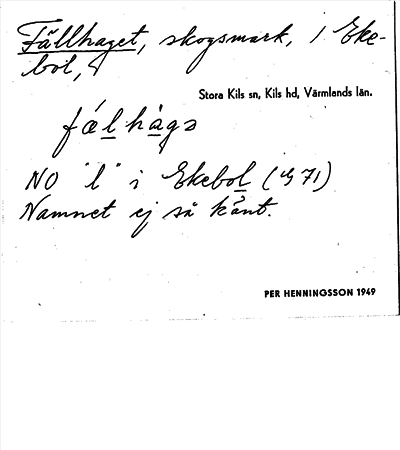 Fällhaget, skogsmark, 1 Eke-
bol,
Stora Kils sn, Kils hd, Värmlands län.
fælhagə
NO "l" i Ekebol (G 71)
Namnet ej så känt.
PER HENNINGSSON 1949